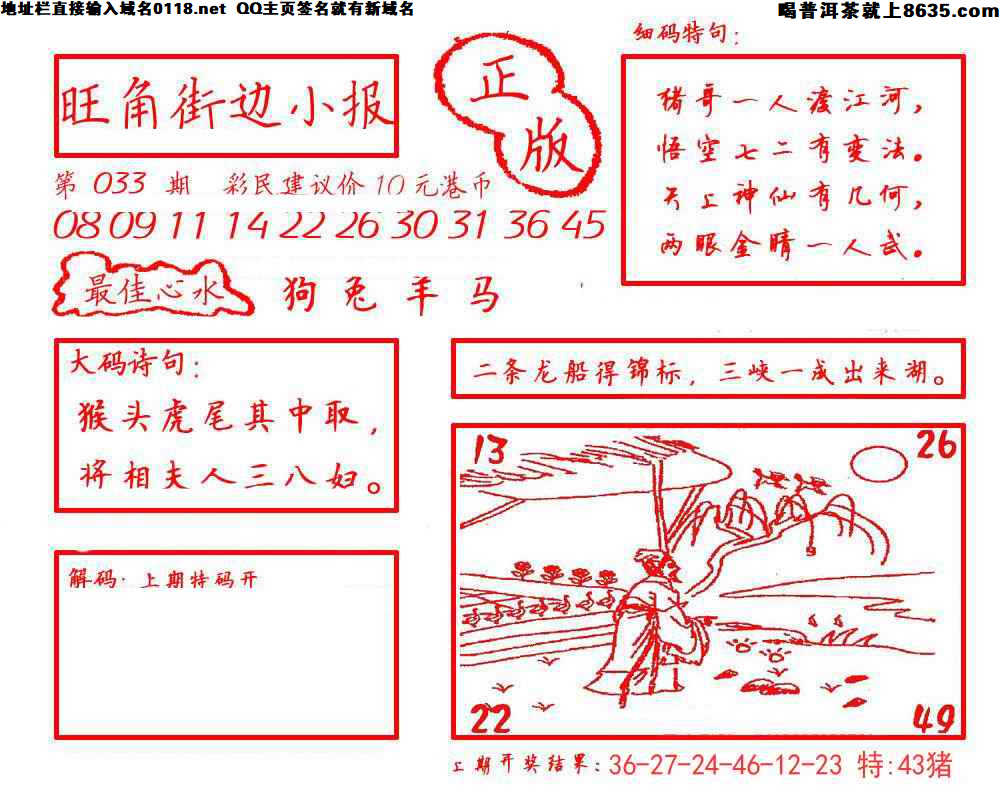 地址栏直接输入域名0118.net QQ主页签名就有新域名
喝普洱茶就上8635.com
旺角街边小报
正版
第 033 期 彩民建议价10元港币
08 09 11 14 22 26 30 31 36 45
最佳心水 狗 兔 羊 马
细码特句:
猪哥一人渡江河,
悟空七二有变法。
天上神仙有几何,
两眼金睛一人武。
大码诗句:
猴头虎尾其中取,
将相夫人三八妇。
二条龙船得锦标, 三峡一成出来湖。
解码· 上期特码开
13
26
22
49
上期开奖结果: 36-27-24-46-12-23 特:43猪